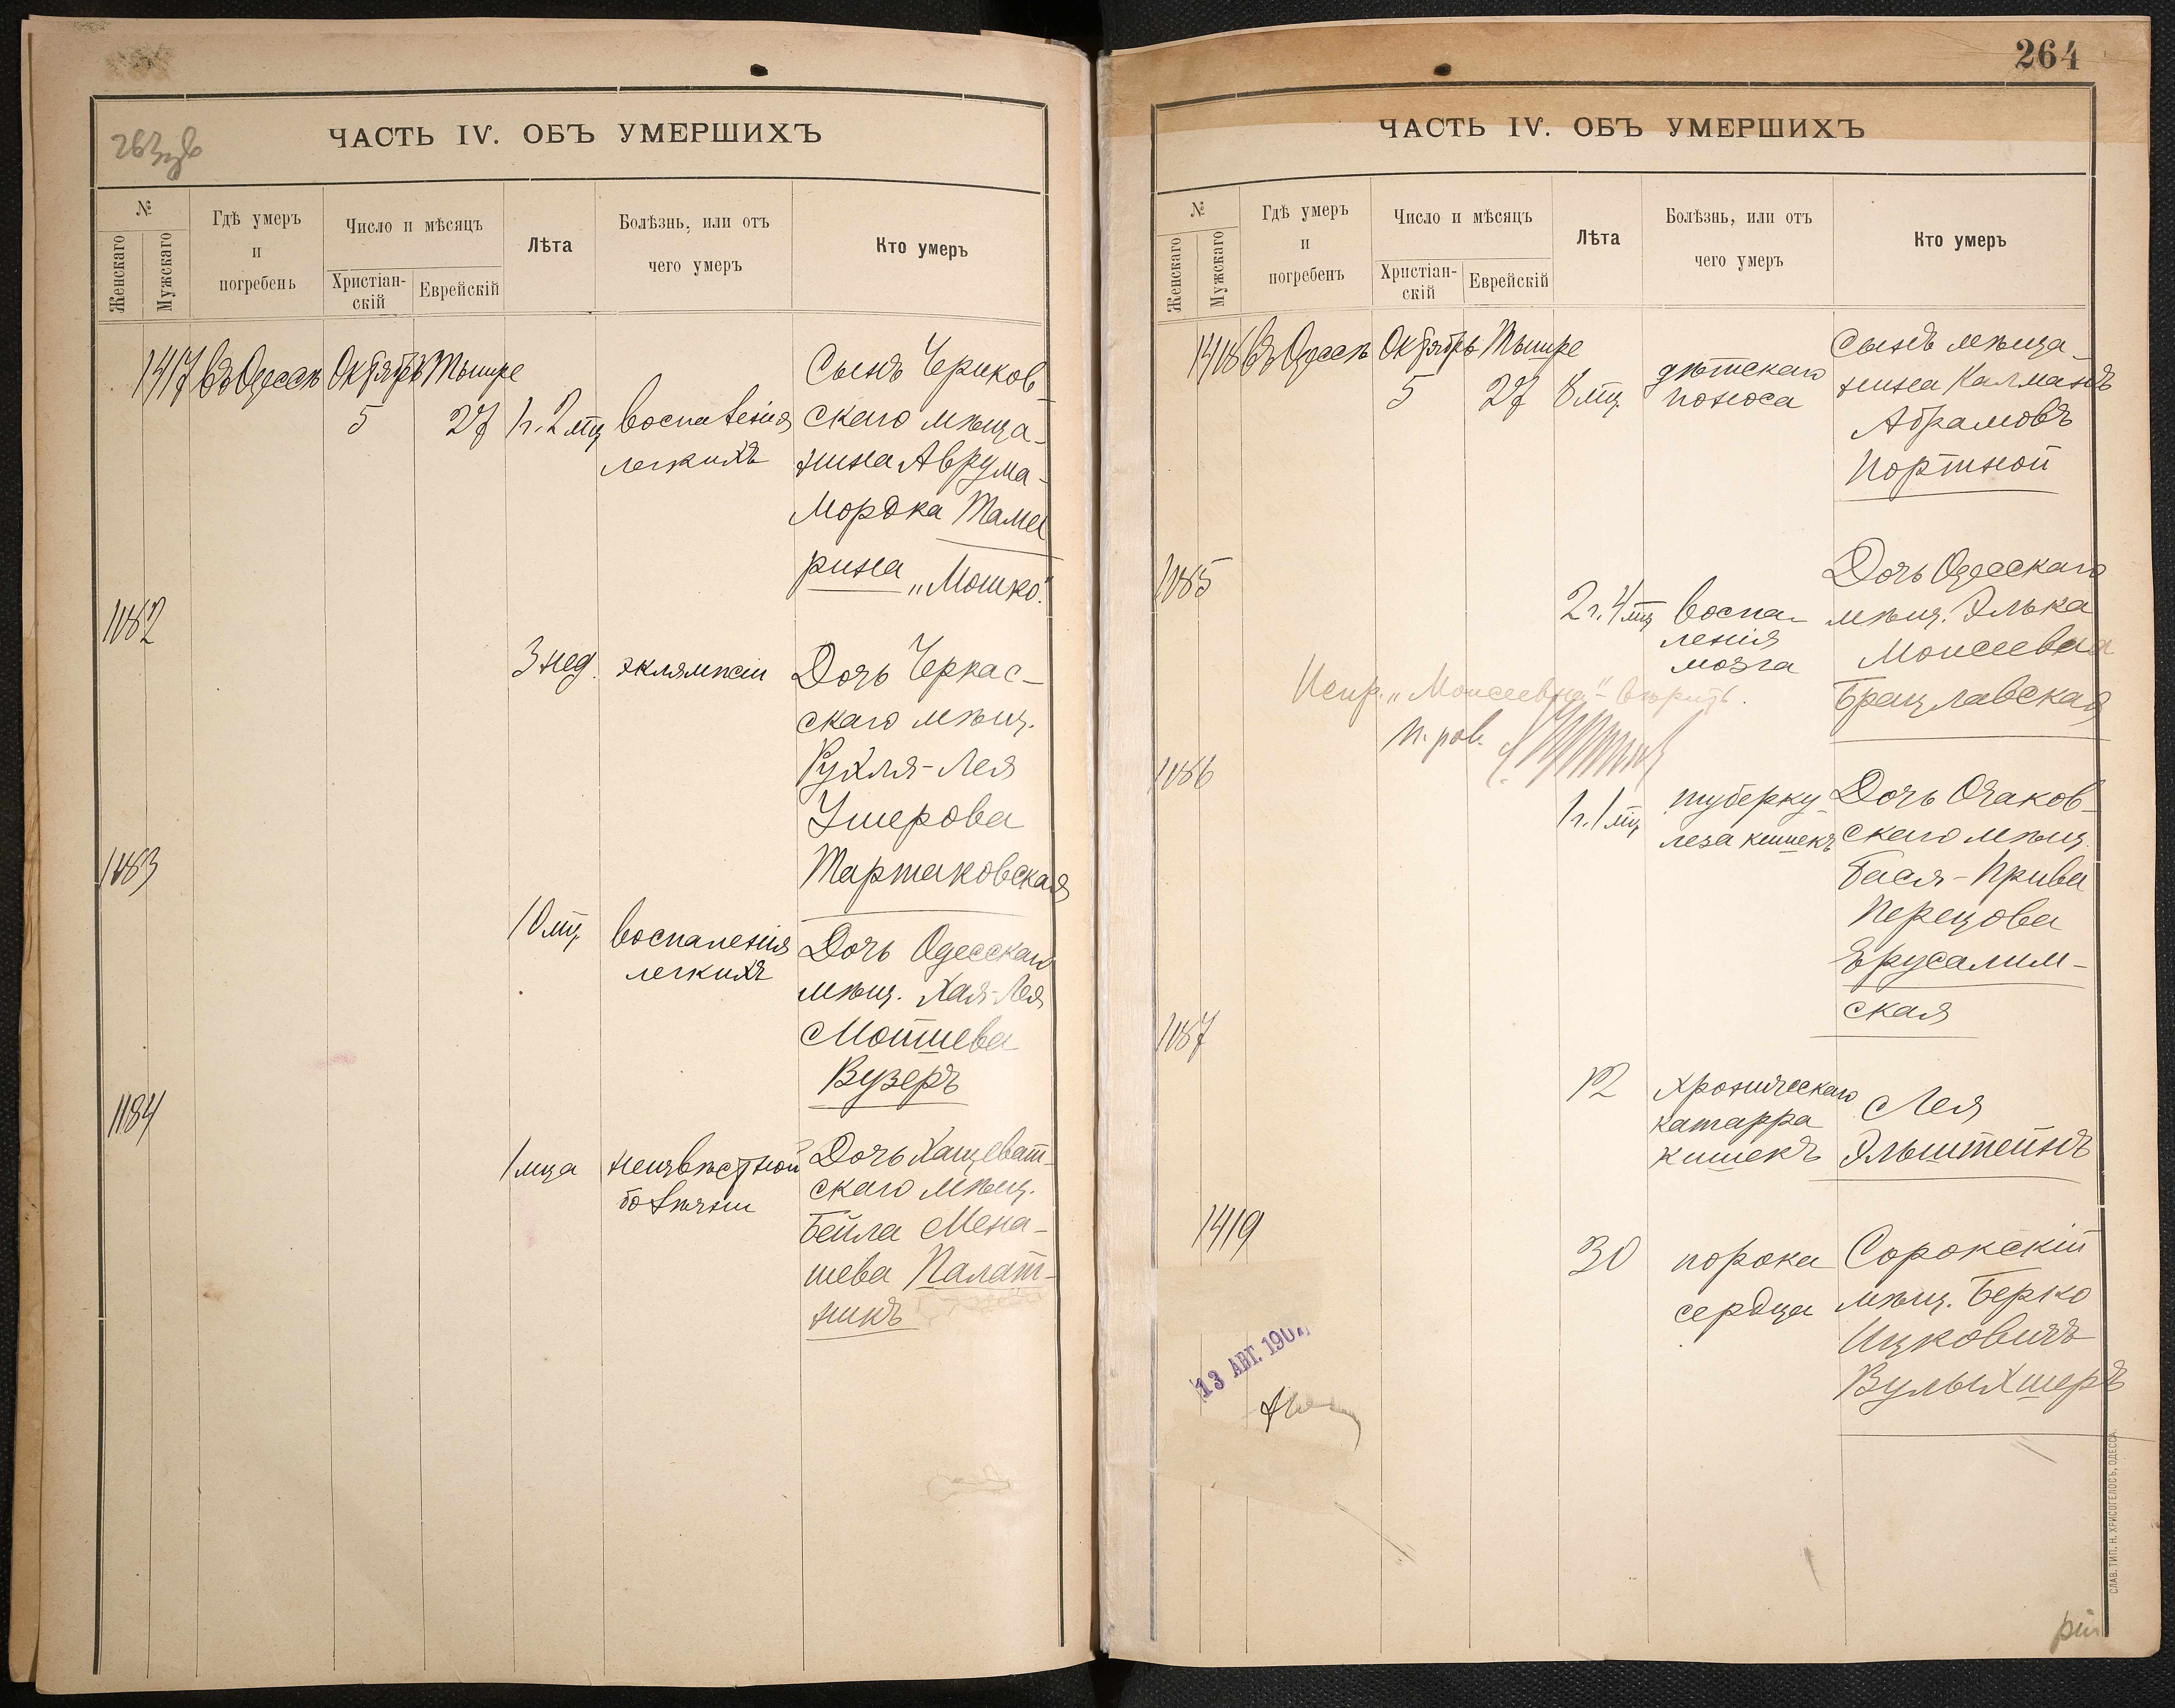 263 об
ЧАСТЬ IV. ОБЪ УМЕРШИХЪ
№
Женскаго
Мужскаго
Гдѣ умеръ
и
погребенъ
Число и мѣсяцъ
Христіан-
скій
Еврейскій
Лѣта
Болѣзнь, или отъ
чего умеръ
Кто умеръ
1417 въ Одессѣ Октябрь Тышре
5 27 1 г. 2 мц воспаленія легкихъ
Сынъ Чериков-
скаго мѣща-
нина Аврума-
Мордка Тама
рина „Мошко“.
1082
3 нед. эклямпсіи
Дочь Черкас-
скаго мѣщ.
Рухля-Лея
Ушерова
Тартаковская
1083
10 мц воспаленія
легкихъ
Дочь Одесскаго
мѣщ. Хая-Лея
Мотшева
Вузеръ
1184
1 мца неизвѣстной
болѣзни
Дочь Хащеват-
скаго мѣщ.
Бейла Мена-
шева Палат-
никъ
264
ЧАСТЬ IV. ОБЪ УМЕРШИХЪ
№
Женскаго
Мужскаго
Гдѣ умеръ
и
погребенъ
Число и мѣсяцъ
Христіан-
скій
Еврейскій
Лѣта
Болѣзнь, или отъ
чего умеръ
Кто умеръ
1418 въ Одессѣ Октябрь Тышре
5 27 8 мц. дѣтскаго
поноса
Сынъ мѣща-
нина Калманъ
Абрамовъ
Портной
1085
2 г. 4 мц воспа-
ленія
мозга
Дочь Одесскаго
мѣщ. Элька
Моисеевна
Брацлавская
Испр. „Моисеевна“ - вѣрить.
П. рав.
1086
1 г. 1 мц туберку-
леза кишекъ
Дочь Очаков-
скаго мѣщ.
Бася-Прива
Перецова
Ерусалим-
ская
1087
12 хроническаго
катарра
кишекъ
Лея
Эльштейнъ
1419
30 порока
сердца
Сорокскій
мѣщ. Берко
Ицковичъ
Вулыхшеръ
13 АВГ. 190
СЛАВ. ТИП. Н. ХРИСОГЕЛОСЪ, ОДЕССА.